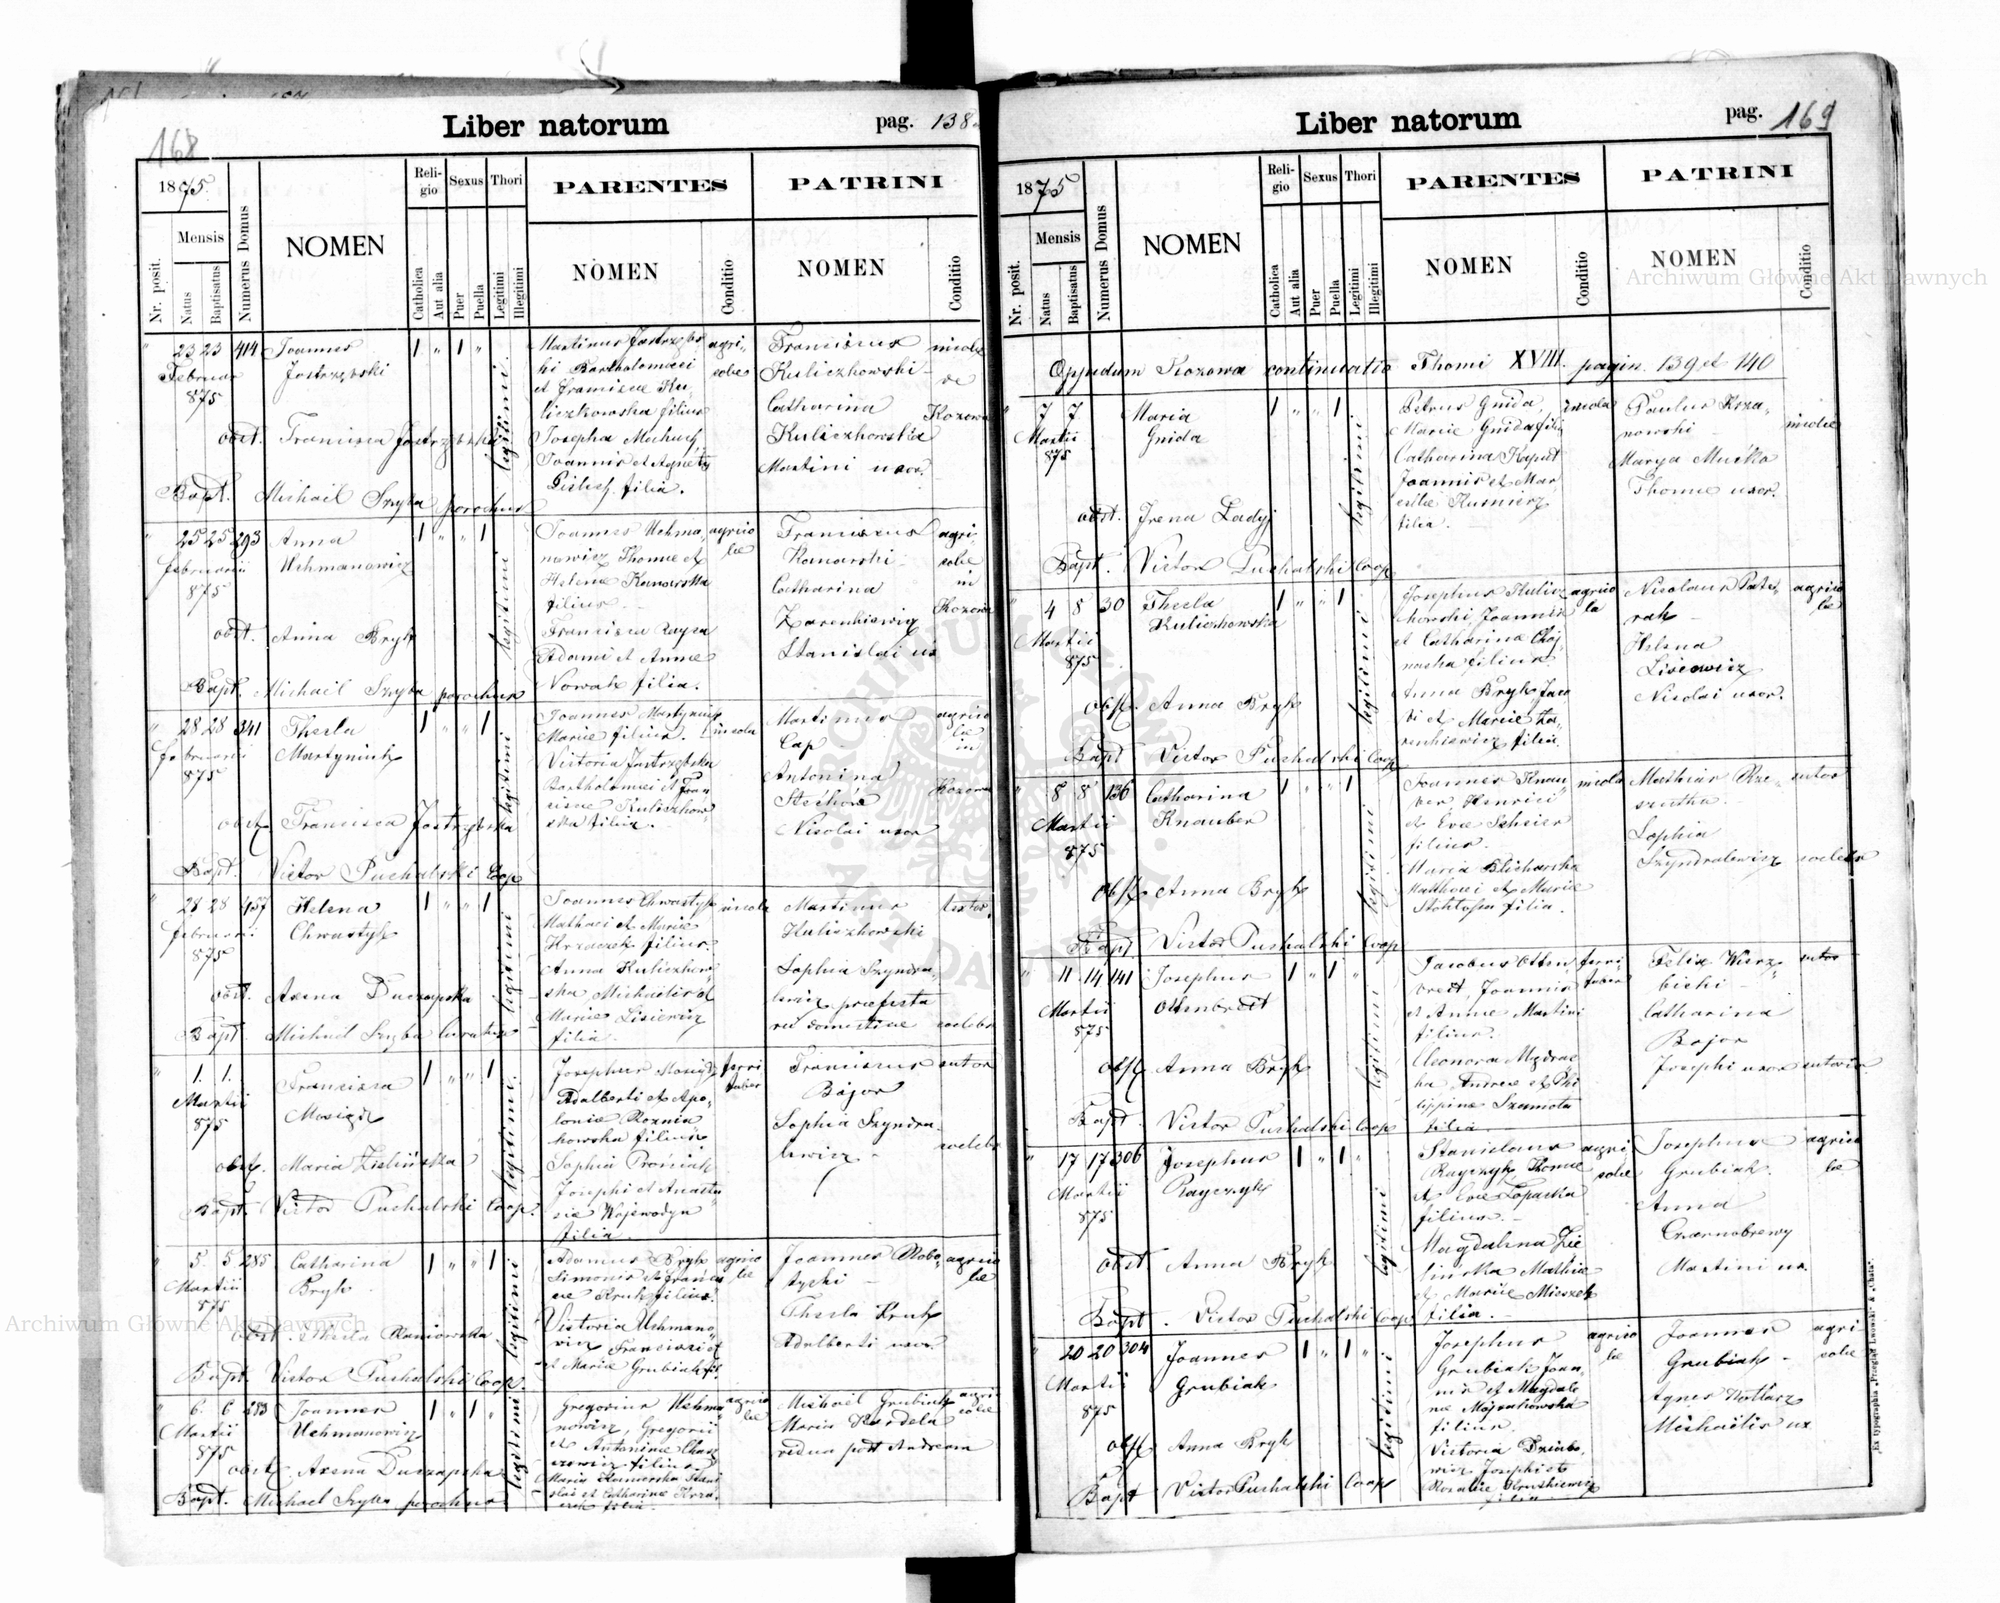 168
Liber natorum pag. 138
1875.
Nr. posit.
Mensis
Natus
Baptisatus
Numerus Domus
NOMEN
Religio
Catholica
Aut alia
Sexus
Puer
Puella
Thori
Legitimi
Illegitimi
PARENTES
NOMEN
Conditio
PATRINI
NOMEN
Conditio
" 23 23 414 Joannes 1 " 1 "
Februar Jastrzębski
875
obst. Francisca Jastrzębska
Bapt. Michaël Szyba parochus
legitimi
Martinus Jastrzębs
ki Bartholomaei
et Franciscae Ku
liczkowska filius
Josepha
Joannis et Agnetis
filia.
agri-
colae
Franciscus
Kuliczkowski -
Catharina
Kuliczkowska
Martini uxor
incolae
de
Kozowa
" 25 25 293 Anna 1 " " 1
februarii Uchmanowicz
875
obst. Anna Bryk
Bapt. Michaël Szyba parochus
legitimi
Joannes Uchma
nowicz Thomae et
Helenae
filius -
Francisca
Adami et Annae
Nowak filia.
agrico
lae
Franciscus
-
Catharina
Zarenkiewicz
Stanislai ux
agri-
colae
in
Kozowa
" 28 28 341 Thecla 1 " " 1
februarii Martyniuk
875
obst. Francisca Jastrzębska
Bapt. Victor Puchalski Coop
legitimi
Joannes Martyniuk
Mariae filius.
Victoria Jastrzębska
Bartholomaei et Fran
ciscae Kuliczkow
ska filia.
incola
Martinus
Cap -
Antonina
Nicolai uxor
agrico
lae
in
Kozowa
" 28 28 457 Helena 1 " " 1
februarii Chwastyk
875
obst. Axena Duczapska
Bapt. Michael Szyba
legitimi
Joannes Chwastyk
Mathaei et Mariae
Krzaczek filius
Anna Kuliczkow
ska, Michaëlis et
Mariae Lisiewicz
filia.
incola
Martinus
Kuliczkowski
Sophia Szyndra
lewicz praefecta
rei domesticae
textor
caelebs
" 1. 1. Francisca 1 " " 1
Martii
875
obst. Maria Zielińska
Bapt. Victor Puchalski Coop.
legitimi.
Josephus
Adalberti et Apo-
loniae Roznia
kowska filius
Sophia Proniak
Josephi et Anasta
siae Wojewodyn
filia.
ferri
faber
Franciscus
Bojor
Sophia Szyndra
lewicz -
sutor
caelebs
" 5. 5 285 Catharina 1 " " 1
Martii Bryk
875
obst. Thecla
Bapt. Victor Puchalski Coop.
legitimi
Adamus Bryk
Simonis et Francis
cae Kruk filius.
Victoria Uchmano
wicz Francisci et
et Maria Grubiak fil.
agrico
lae
Joannes
-
Thecla Kruk
Adalberti uxor
agrico
lae
" 6. 6 283 Joannes 1 " 1 "
Martii Uchmanowicz
875
obst. Axena Duczapska
Bapt. Michael Szyba parochus
legitimi
Gregorius Uchma
nowicz, Gregorii
et Antoninae
filius
Maria Stani
slai et Catharinae
filia.
agrico
lae
Michaël Grubiak
Maria Kardela
vidua post Andream
agri
colae
Liber natorum pag. 169
1875
Nr. posit.
Mensis
Natus
Baptisatus
Numerus Domus
NOMEN
Religio
Catholica
Aut alia
Sexus
Puer
Puella
Thori
Legitimi
Illegitimi
PARENTES
NOMEN
Conditio
PATRINI
NOMEN
Conditio
Oppidum Kozowa continuatio Thomi XVIII. pagin. 139 et 140
" 7 7. Maria 1 " " 1
Martii Gnida
875
obst. Irena
Bapt. Victor Puchalski Coop
legitimi
Petrus Gnida,
Mariae Gnida fili,
Catharina Kaput
Joannis et Mar
Kusnierz
filia.
incola
Paulus Krza-
nowski -
Marya Muśko
Thomae uxor.
incolae
" 4 8 30 Thecla 1 " " 1
Martii Kuliczkowska
875
obst. Anna Bryk
Bapt Victor Puchalski Coop
legitimi
Josephus Kulicz
kowski, Joannis
et Catharinae Choj
nacka filius.
Anna Bryk Jaco
bi et Mariae Za
renkiewicz filia.
agrico
la
Nicolaus Pate-
rak -
Helena
Lisiewicz
Nicolai uxor.
agrico
lae
" 8 8 136 Catharina 1 " " 1
Martii Knauber
875
obst. Anna Bryk
Bapt Victor Puchalski Coop
legitimi
Joannes Knau
ber, Henrici
et Evae Scheier
filius.
Maria Blicharska
Matthaei et Mariae
filia.
incola
Mathias Rze-
szutka. -
Sophia
Szyndralewicz
sutor
caelebs
" 11 14 141 Josephus 1 " 1 "
Martii Ottenbreit
875
obst. Anna Bryk
Bapt. Victor Puchalski Coop
legitimi
Jacobus Otten
breit, Joannis
et Annae Martini
filius.
Eleonora
ka, Andreae et Phi
lippinae Szamota
filia
ferri-
faber
Felix Wierz-
bicki -
Catharina
Bojor
Josephi uxor
sutor
sutoris
" 17 17 306 Josephus 1 " 1 "
Martii Rayczyk
875
obst Anna Bryk
Bapt. Victor Puchalski Coop
legitimi
Stanislaus
Rayczyk Thomae
et Evae Łoparka
filius. -
Magdalena Zie
lińska Mathiae
et Mariae Mieszek
filia. -
agri
colae
Josephus
Grubiak
Anna
Czarnobrewy
Martini ux.
agrico
lae
" 20 20 304 Joannes 1 " 1 "
Martii Grubiak
875
obst Anna Bryk
Bapt Victor Puchalski Coop
legitimi
Josephus
Grubiak Joan-
nis et Magdale
nae Majachowska
filius.
Victoria Dziubo
wicz Josephi et
Rosaliae
filia
agrico
lae
Joannes
Grubiak -
Agnes Kotlarz
Michaëlis ux
agri
colae
"Ex typographia „Przegląd Lwowski" & „Chata".
Archiwum Główne Akt Dawnych
Archiwum Główne Akt Dawnych
ARCHIWUM GŁÓWNE · AKT DAWNYCH ·